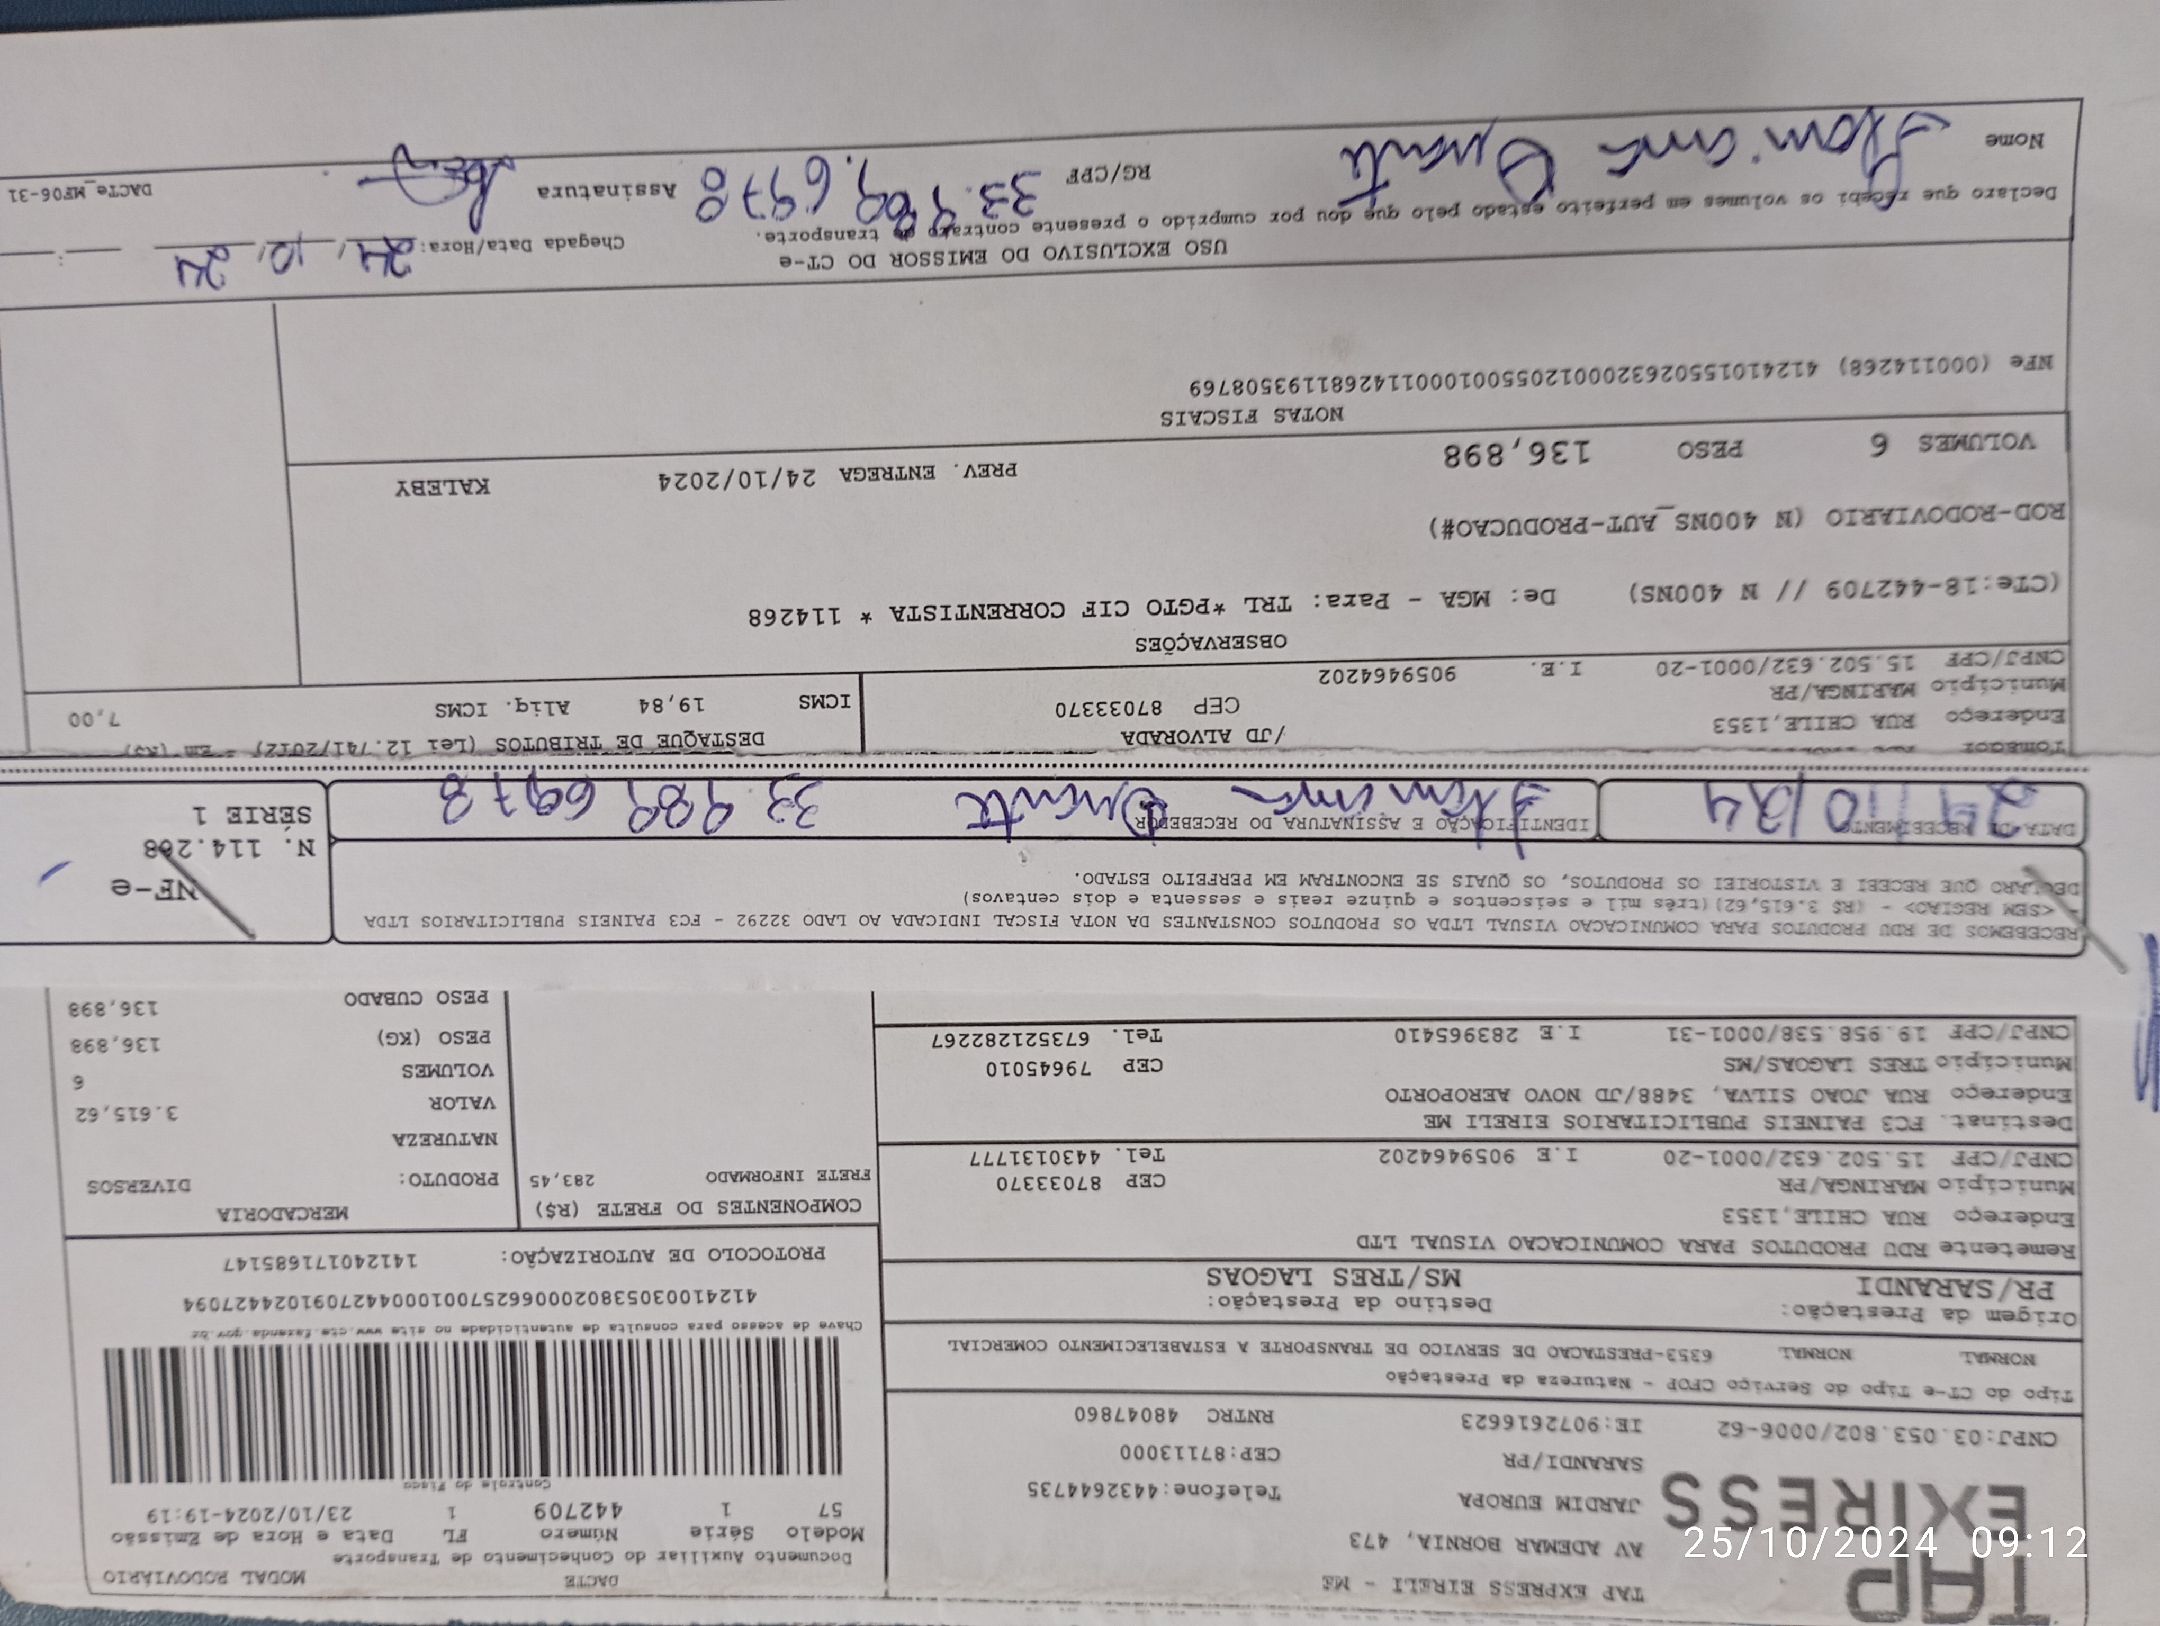 TAP
EXIRESS
TAP EXPRESS EIRELI - ME
AV ADEMAR BORNIA, 473
JARDIM EUROPA
Telefone:4432644735
SARANDI/PR
CEP:87113000
CNPJ:03.053.802/0006-62 IE:9072616623 RNTRC 48047860
DACTE MODAL RODOVIÁRIO
Documento Auxiliar do Conhecimento de Transporte
Modelo Série Número FL Data e Hora de Emissão
57 1 442709 1 23/10/2024-19:19
Controle do Fisco
Chave de acesso para consulta de autenticidade no site www.cte.fazenda.gov.br
41241003053802000662570010004427091024427094
PROTOCOLO DE AUTORIZAÇÃO: 141240171685147
Tipo do CT-e Tipo do Serviço CFOP - Natureza da Prestação
NORMAL NORMAL 6353-PRESTACAO DE SERVICO DE TRANSPORTE A ESTABELECIMENTO COMERCIAL
Origem da Prestação: Destino da Prestação:
PR/SARANDI MS/TRES LAGOAS
Remetente RDU PRODUTOS PARA COMUNICACAO VISUAL LTD
Endereço RUA CHILE,1353
Município MARINGA/PR CEP 87033370
CNPJ/CPF 15.502.632/0001-20 I.E 9059464202 Tel. 4430131777
Destinat. FC3 PAINEIS PUBLICITARIOS EIRELI ME
Endereço RUA JOAO SILVA, 3488/JD NOVO AEROPORTO
Município TRES LAGOAS/MS CEP 79645010
CNPJ/CPF 19.958.538/0001-31 I.E 283965410 Tel. 673521282267
COMPONENTES DO FRETE (R$)
FRETE INFORMADO 283,45
MERCADORIA
PRODUTO: DIVERSOS
NATUREZA
VALOR 3.615,62
VOLUMES 6
PESO (KG) 136,898
PESO CUBADO 136,898
RECEBEMOS DE RDU PRODUTOS PARA COMUNICACAO VISUAL LTDA OS PRODUTOS CONSTANTES DA NOTA FISCAL INDICADA AO LADO 32292 - FC3 PAINEIS PUBLICITARIOS LTDA
- <SEM REGIAO> - (R$ 3.615,62)(três mil e seiscentos e quinze reais e sessenta e dois centavos)
DECLARO QUE RECEBI E VISTORIEI OS PRODUTOS, OS QUAIS SE ENCONTRAM EM PERFEITO ESTADO.
NF-e
N. 114.268
SÉRIE 1
DATA DE RECEBIMENTO
24/10/24
IDENTIFICAÇÃO E ASSINATURA DO RECEBEDOR
33.989.697 8
Tomador
Endereço RUA CHILE,1353 /JD ALVORADA
Município MARINGA/PR CEP 87033370
CNPJ/CPF 15.502.632/0001-20 I.E. 9059464202
DESTAQUE DE TRIBUTOS (Lei 12.741/2012) - Em (R$)
ICMS 19,84 Aliq. ICMS 7,00
OBSERVAÇÕES
(CTe:18-442709 // N 400NS) De: MGA - Para: TRL *PGTO CIF CORRENTISTA * 114268
ROD-RODOVIARIO (N 400NS_AUT-PRODUCAO#)
VOLUMES 6 PESO 136,898
PREV. ENTREGA 24/10/2024 KALEBY
NOTAS FISCAIS
NFe (000114268) 41241015502632000120550010001142681193508769
USO EXCLUSIVO DO EMISSOR DO CT-e
Chegada Data/Hora: 24/10/24
Declaro que recebi os volumes em perfeito estado pelo que dou por cumprido o presente contrato de transporte.
Nome
RG/CPF 33.989.697 8
Assinatura
DACTe_MF06-31
25/10/2024 09:12